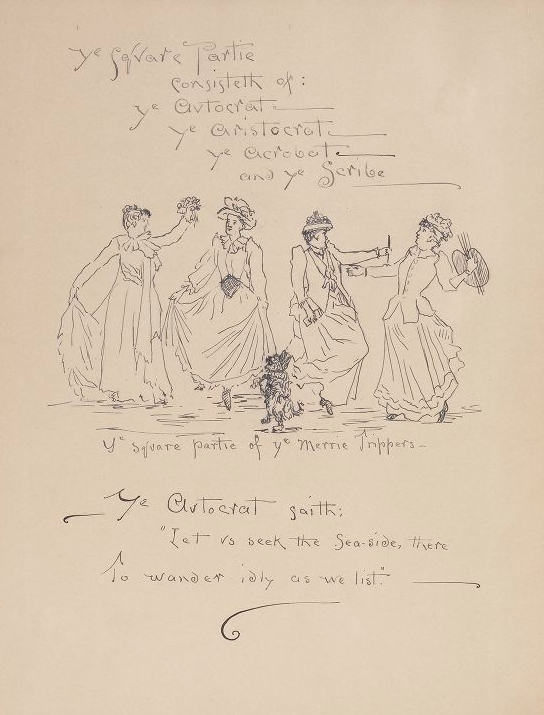 Ye Sqvare Partie
consisteth of:
ye Avtocrat
ye Aristocrat
ye Acrobat
and ye Scribe
Ye Sqvare partie of ye Merrie Trippers
Ye Avtocrat saith;
"Let vs seek the Sea-side, there
To wander idly as we list."